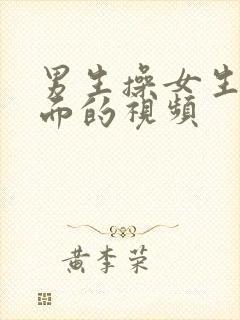 男生操女生
而的視頻
黄李荣